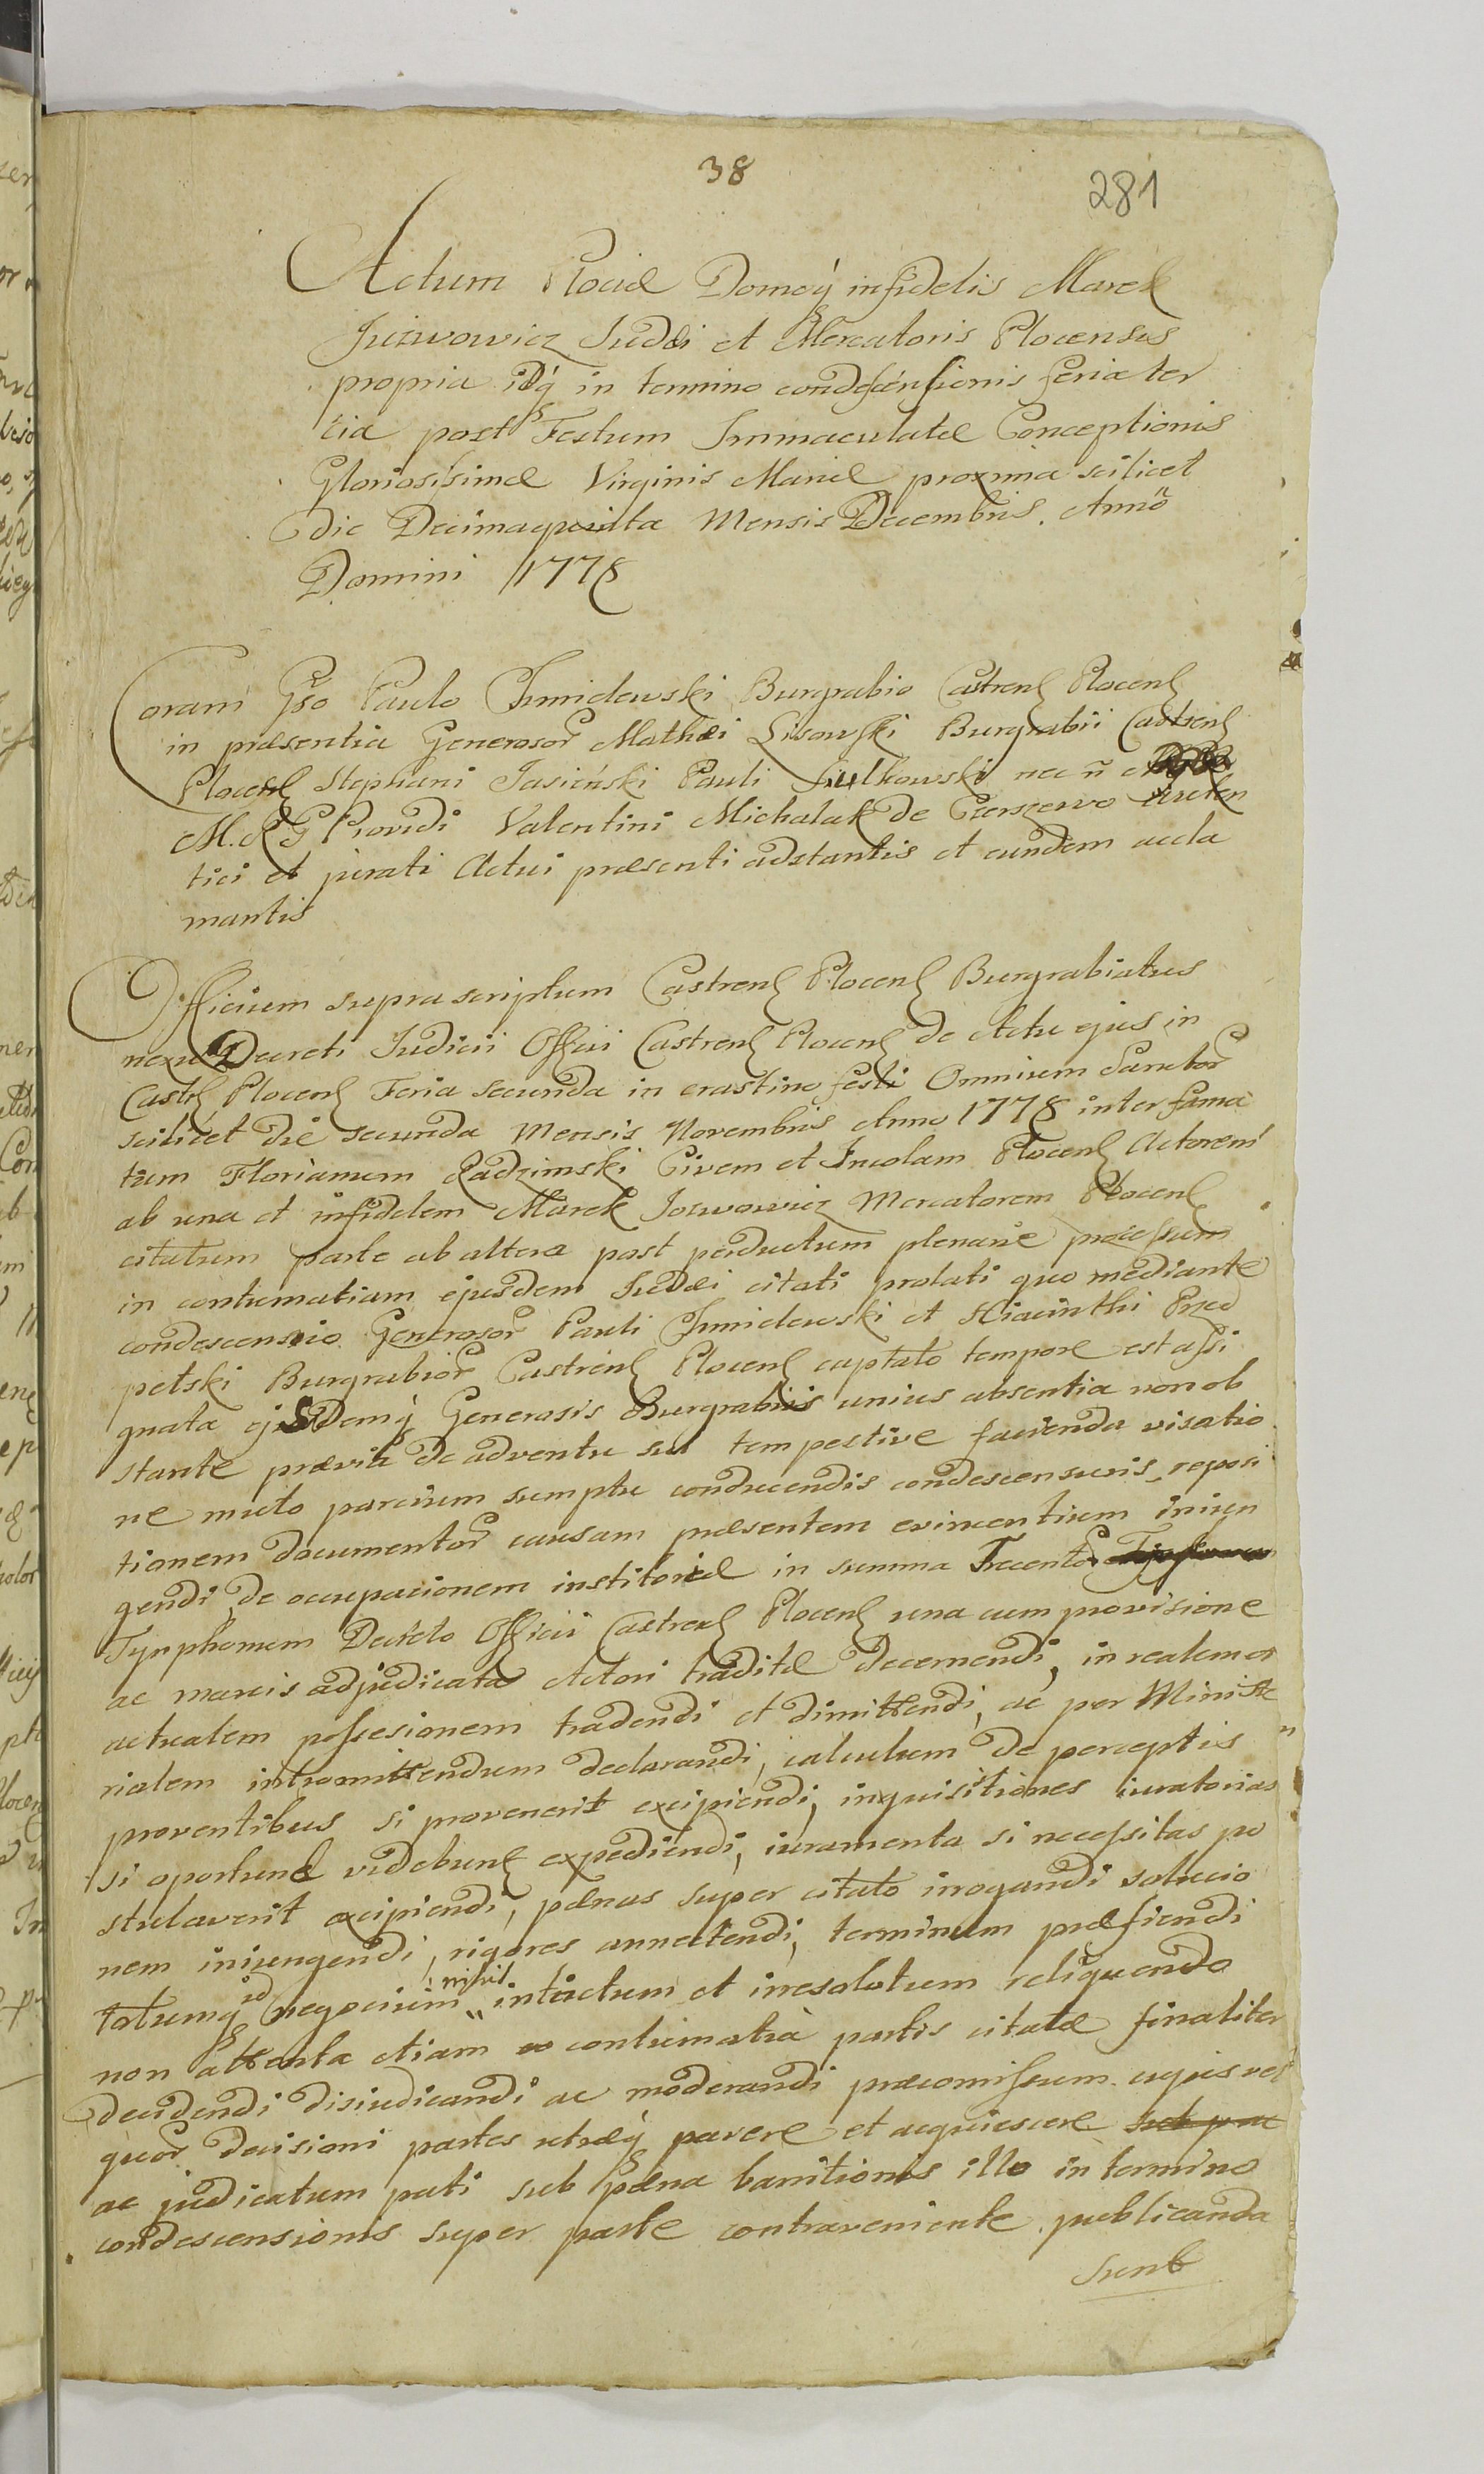 38
281
Actum Plociæ Domoq́ infidelis Marek
Juzwowicz Judæi et Mercatoris Plocensis
propria idq́ in termino condescensionis feria ter
tia post Festum Immaculatæ Conceptionis
Gloriosissimæ Virginis Mariæ proxima scilicet
die Decimaquinta Mensis Decembris. Anno
Domini 1778
Coram Gso Paulo Smidewski Burgrabio Castren Plocen
in præsentia Generosor Mathæi Lisowski Burgrabii Castren
Plocen Stephani Jasieński Pauli Sulkowski nec n̄
M. R G Providi Valentini Michalak de
tici et jurati Actui præsenti adstantis et eundem accla
mantis
Officium supra scriptum Castren Plocen Burgrabiatus
nexu Decreti Judicii Officii Castren Plocen de Actu ejus in
Castr Plocen Feria secunda in crastino festi Omnium Sanctor
scilicet die secunda Mensis Novembris Anno 1778 inter fama
tum Florianum Radzimski Civem et Incolam Plocen Actorem
ab una et infidelem Marek Jozwowicz Mercatorem Plocen
citatum parte ab altera post perductum plenarie processum
in contumatiam ejusdem Judæi citati prolati quo mediante
condescensio Generosor Pauli Smidewski et Hiacinthi Przed
petski Burgrabior Castren Plocen captato tempore est assi
gnata ejsdemq́ Generosis Burgrabiis unius absentia non ob
stante prævia de adventu sui tempestive facienda visatio
ne muto parcium sumptu conducendis condescensuris, reposi
tionem documentor causam præsentem evincentium iniun
gendi, de occupacionem institoriæ in summa Trecentor
Tynphonum Decreto Officii Castren Plocen una cum provisione
ac marcis adjudicata Actori traditæ decernendi, in realem et
actualem possesionem tradendi et dimittendi, ac per Ministe
rialem intromittendum declarandi, calculum de perceptis
proventibus si provenerit excipiendi, inquisitiones iuratorias
si oportunæ videbunt expediendi, iuramenta si necessitas po
stulaverit excipiendi, pænas super citato irogandi solucio
nem iniungendi, rigores annectendi, terminum præfiendi
totumq́ id negocium nihil intactum et irresolutum reliquendo
non attenta etiam contumatia partis citatæ finaliter
decidendi disiudicandi ac moderandi præcomissum. cujus vel
quor decisioni partes utræq́ parere et acquiescere sub pæ
ac judicatum pati sub pæna banitionis illo in termino
condescensionis super parte contraveniente publicanda
sunt